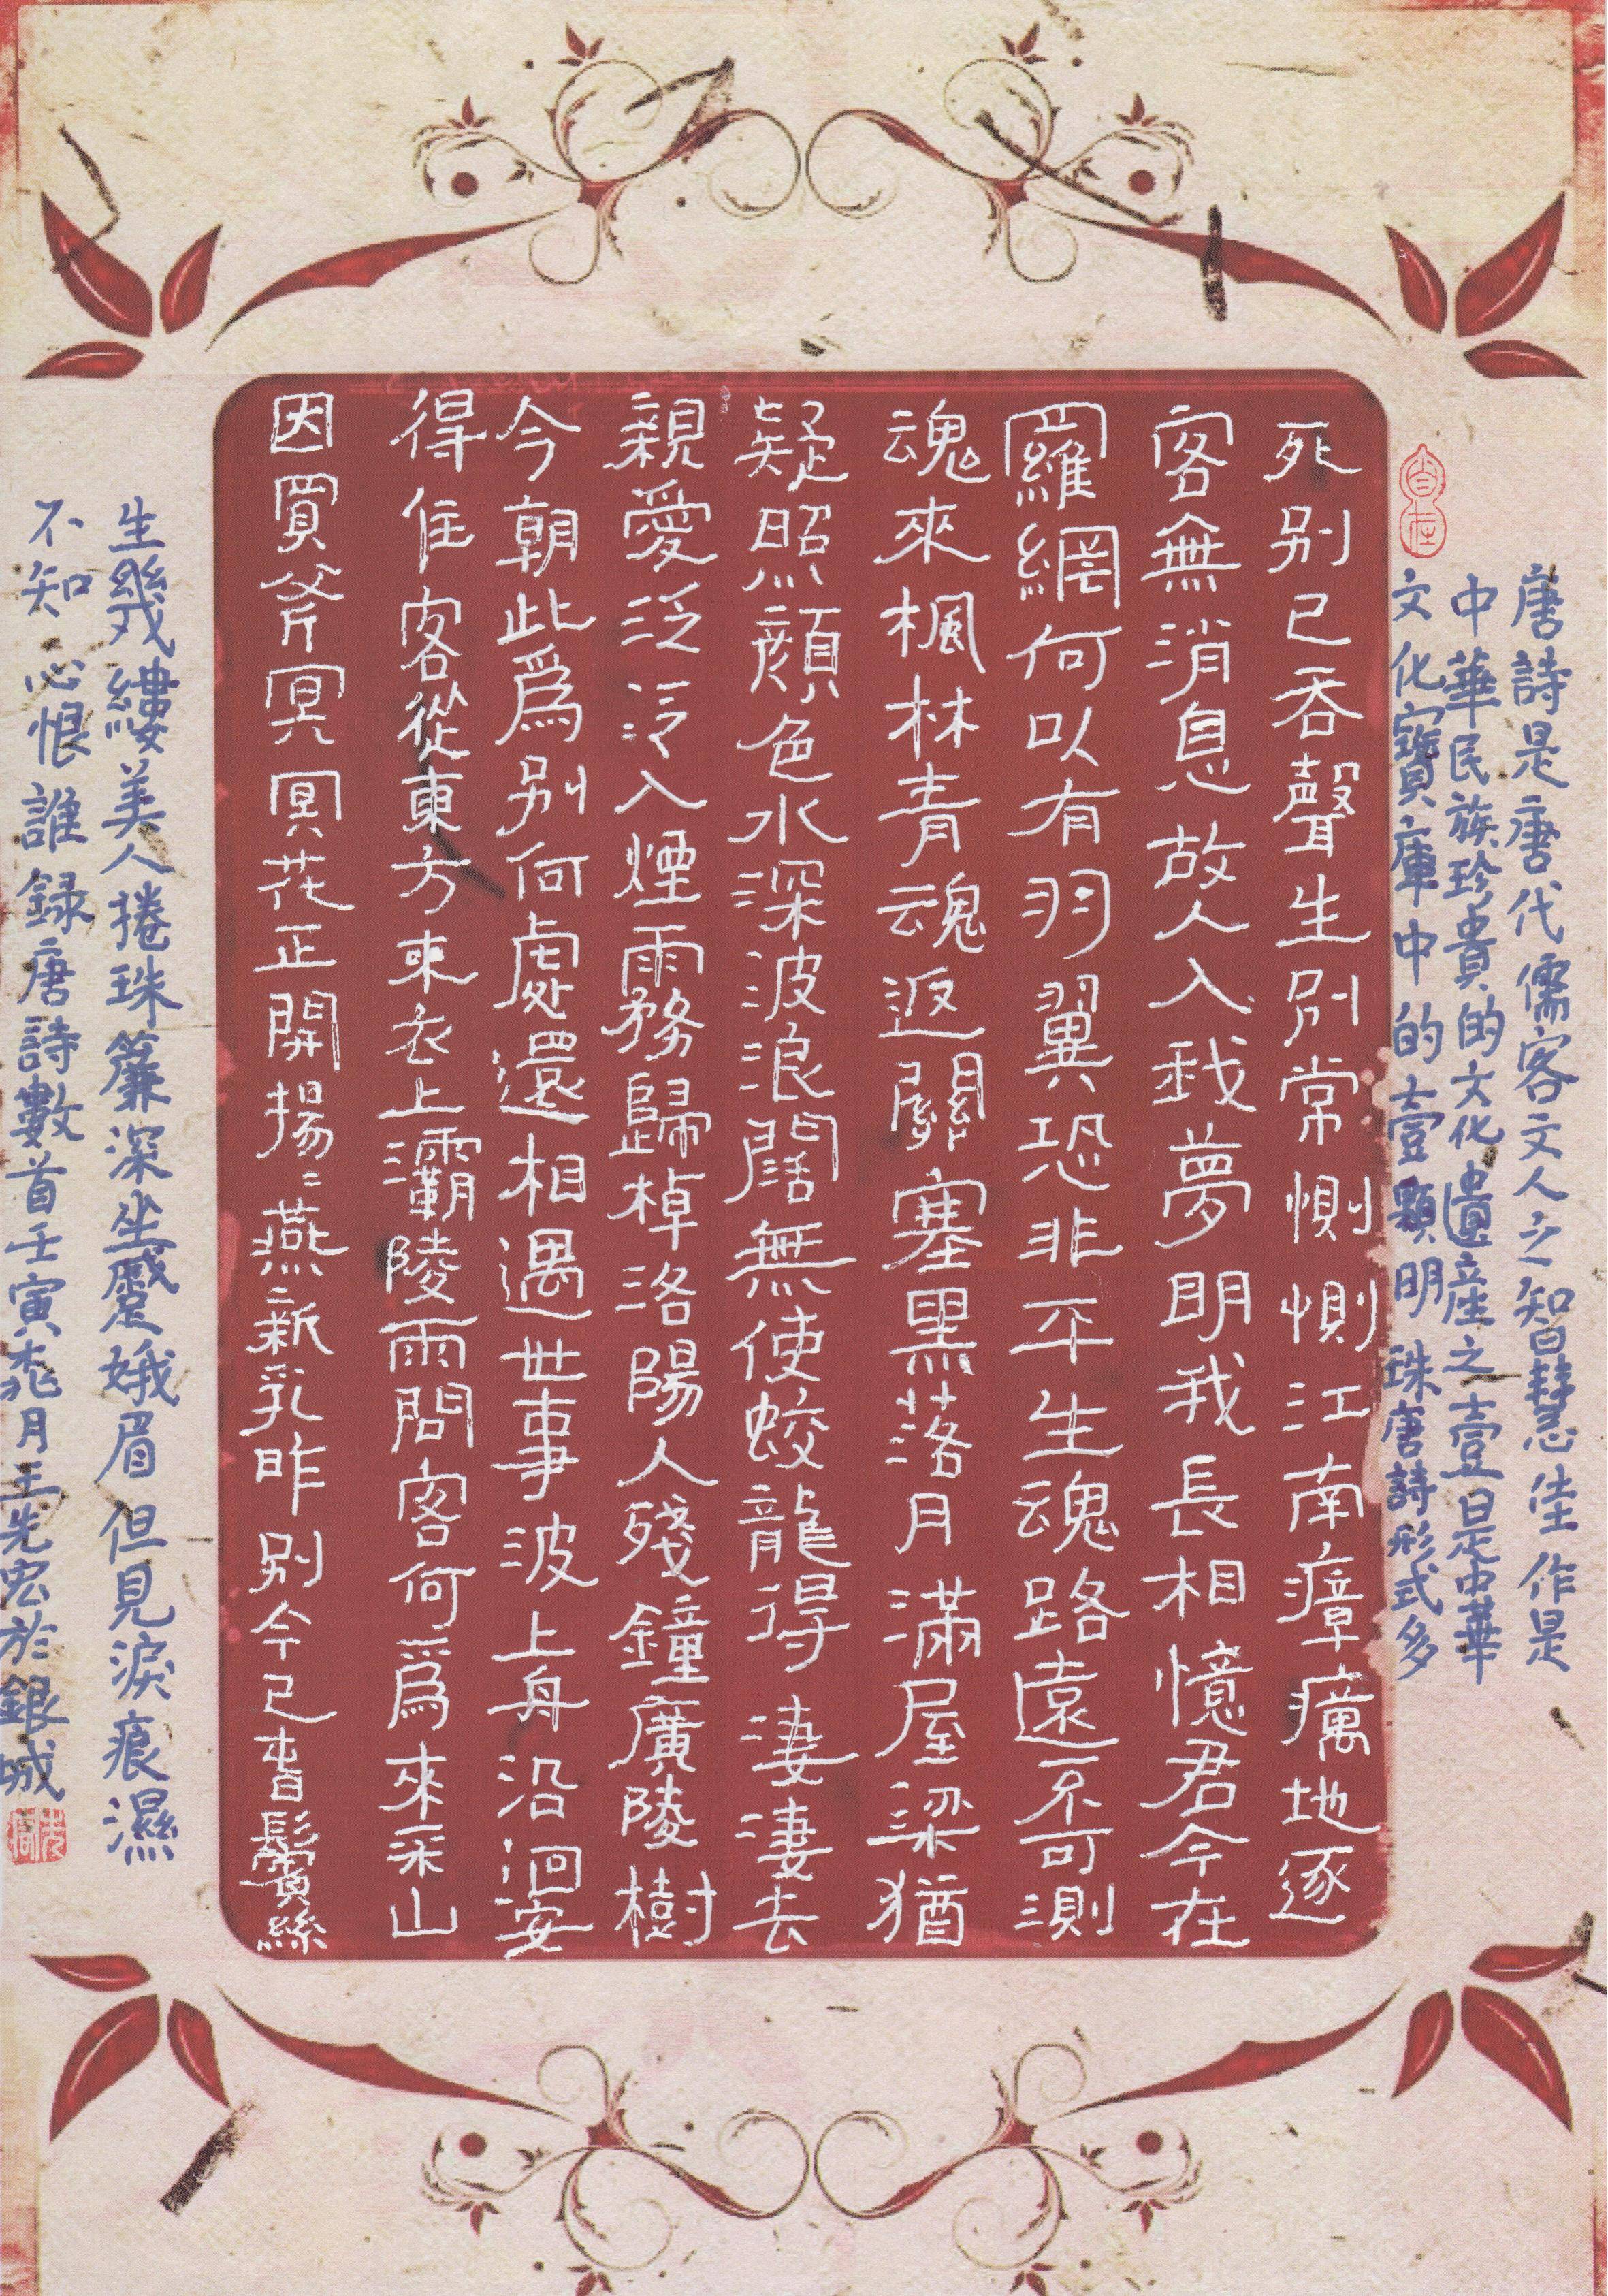 唐詩是唐代儒客文人之智慧佳作是
中華民族珍貴的文化遺産之壹是中華
文化寶庫中的壹顆明珠唐詩形式多
死别已吞聲生别常惻惻江南瘴癘地逐
客無消息故人入我夢明我長相憶君今在
羅網何以有羽翼恐非平生魂路遠不可測
魂來楓林青魂返關塞黑落月滿屋梁猶
疑照顔色水深波浪闊無使蛟龍得淒淒去
親愛泛泛入煙雨務歸棹洛陽人殘鐘廣陵樹
今朝此爲别何處還相遇世事波上舟沿洄安
得住客從東方來衣上灞陵雨問客何爲來采山
因買斧冥冥花正開揚〻燕新乳昨别今已春鬢絲
生幾縷美人捲珠簾深坐蹙娥眉但見淚痕濕
不知心恨誰録唐詩數首壬寅桃月王先宏於銀城